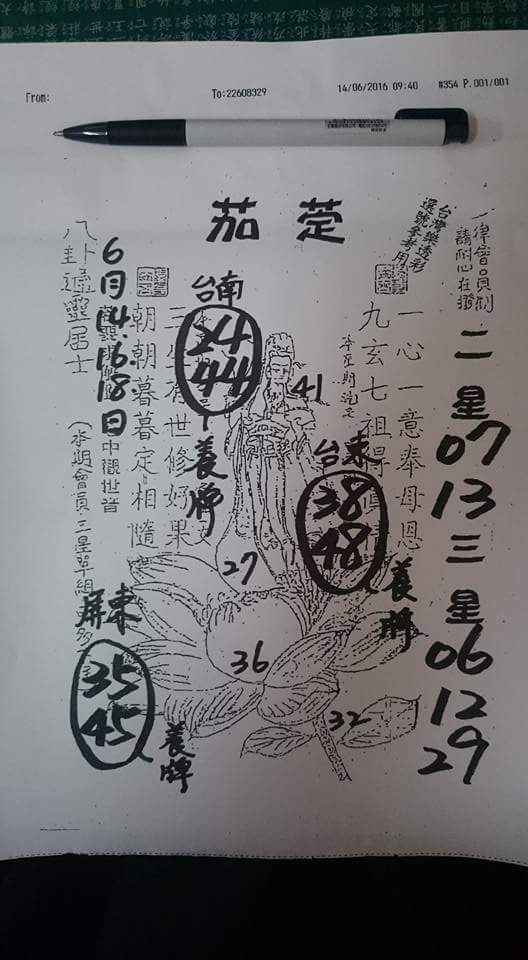 From: To:22608329 14/06/2016 09:40 #354 P.001/001
茄萣
一律會員制
請耐心在撥
台灣樂透彩
選號參考用
二星
07
13
三星
06
12
29
一心一意奉母恩
九玄七祖得
台東
38
48
養牌
41
台南
24
44
養牌
世修好果
朝朝暮暮定相隨
6月14.16.18日
中觀世音
八卦
靈居士
屏東
35
45
養牌
27
36
32